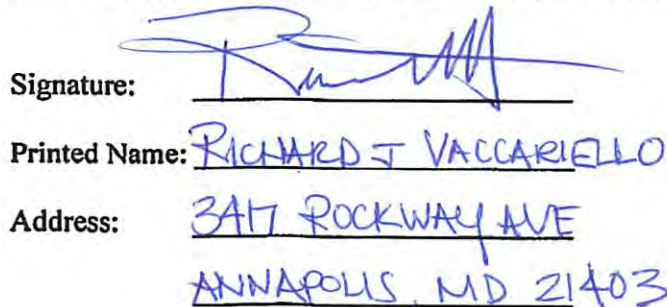 Signature:
Printed Name: RICHARD J VACCARIELLO
Address: 3417 ROCKWAY AVE
ANNAPOLIS, MD 21403